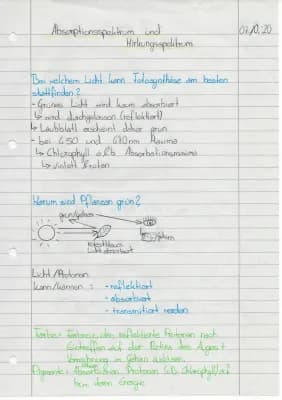 Absorptionsspektrum und
Wirkungsspektrum
07.10.20
Bei welchem Licht kann Fotosynthese am besten
stattfinden?
- Grünes Licht wird kaum absorbiert
↳ wird durchgelassen (reflektiert)
↳ Laubblatt erscheint daher grün
- bei 450 und 670nm Maxima
↳ Chlorophyll a & b Absorbationsmaxima
↳ violett
Warum sind Pflanzen grün?
Licht absorbiert
Licht/Photonen
kann/können: - reflektiert
- absorbiert
- transmitiert werden
Farbe: die reflektierte Photonen nach
Eintreffen auf der Retina des Auges +
Verrechnung im Gehirn auslösen.
Pigmente: Photonen (z.B. Chlorophyll)
deren Energie